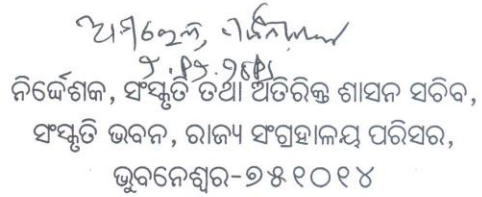 ନିର୍ଦ୍ଦେଶକ, ସଂସ୍କୃତି ତଥା ଅତିରିକ୍ତ ଶାସନ ସଚିବ,
ସଂସ୍କୃତି ଭବନ, ରାଜ୍ୟ ସଂଗ୍ରହାଳୟ ପରିସର,
ଭୁବନେଶ୍ୱର-୭୫୧୦୧୪